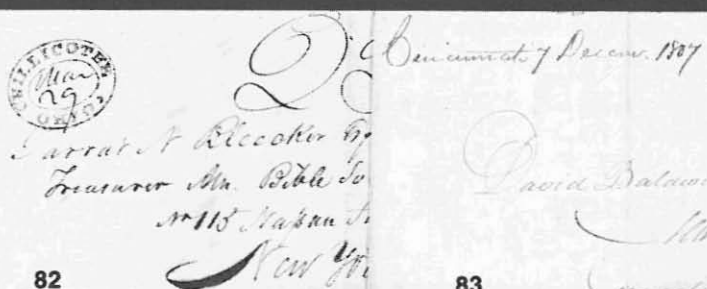 CHILLICOTHE OHIO
Mar
29
Garrat N Bleecker Esq
Treasurer Am. Bible So
No 115 Nassau St
New York
82
Cincinnati 7 Decemr. 1807
David Baldwin
83